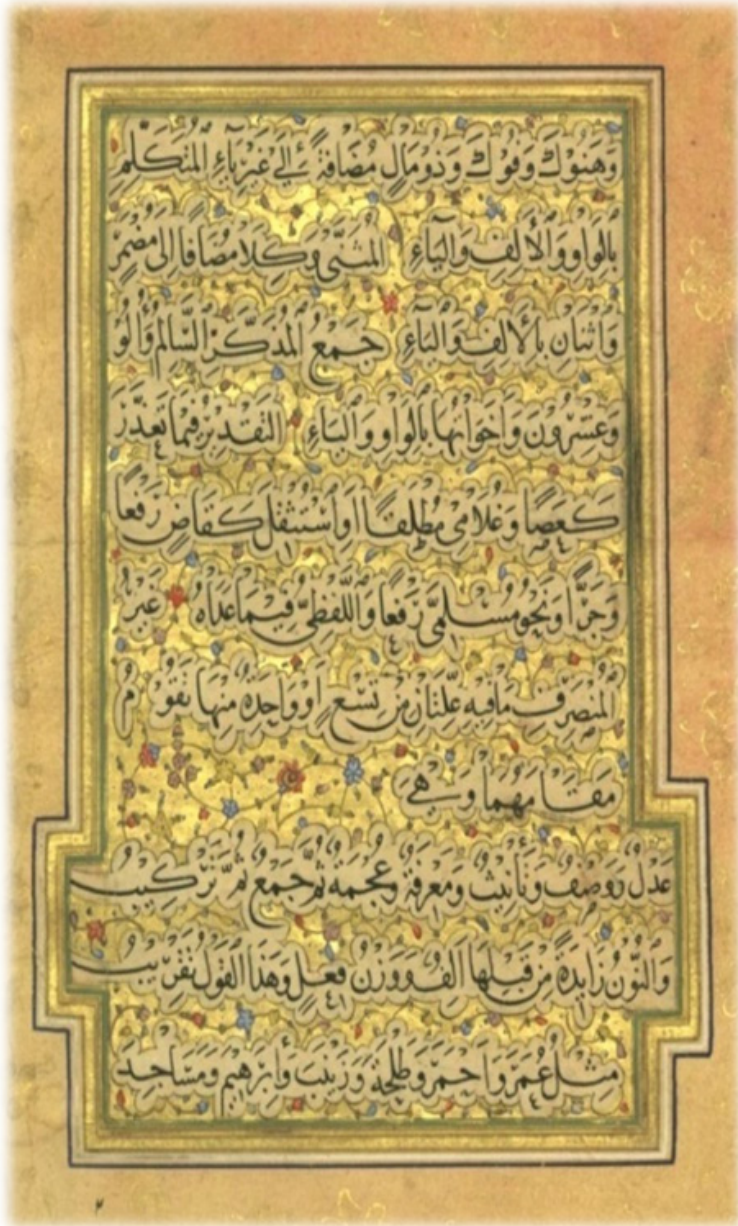 وَهَنُوكَ وَفُوكَ وَذُو مَالٍ مُضَافَةً إِلَى غَيْرِ يَاءِ الْمُتَكَلِّمِ
بِالْوَاوِ وَالْأَلِفِ وَالْيَاءِ الْمُثَنَّى وَكِلَا مُضَافًا إِلَى مُضْمَرٍ
وَاثْنَانِ بِالْأَلِفِ وَالْيَاءِ جَمْعُ الْمُذَكَّرِ السَّالِمُ وَأُلُو
وَعِشْرُونَ وَأَخَوَاتُهَا بِالْوَاوِ وَالْيَاءِ التَّقْدِيرُ فِيمَا تَعَذَّرَ
كَعَصًا وَغُلَامِى مُطْلَقًا أَوِ اسْتُثْقِلَ كَقَاضٍ رَفْعًا
وَجَرًّا وَنَحْوُ مُسْلِمِىَّ رَفْعًا وَاللَّفْظِىُّ فِيمَا عَدَاهُ غَيْرُ
الْمُنْصَرِفِ مَا فِيهِ عِلَّتَانِ مِنْ تِسْعٍ أَوْ وَاحِدَةٌ مِنْهَا تَقُومُ
مَقَامَهُمَا وَهِىَ
عَدْلٌ وَوَصْفٌ وَتَأْنِيثٌ وَمَعْرِفَةٌ وَعُجْمَةٌ ثُمَّ جَمْعٌ ثُمَّ تَرْكِيبُ
وَالنُّونُ زَايِدَةً مِنْ قَبْلِهَا أَلِفٌ وَوَزْنُ فِعْلٍ وَهَذَا الْقَوْلُ تَقْرِيبُ
مِثْلُ عُمَرَ وَأَحْمَرَ وَطَلْحَةَ وَزَيْنَبَ وَإِبْرٰهِيمَ وَمَسَاجِدَ
٢